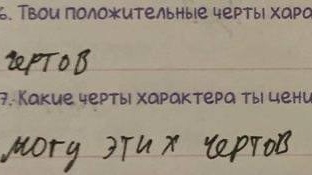 6. Твои положительные черты хара
чертов
7. Какие черты характера ты цени
могу этих чертов